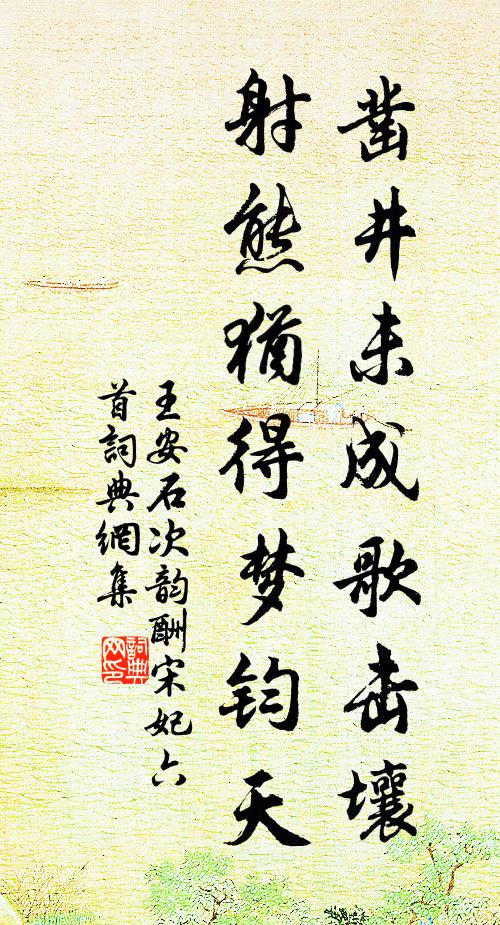 凿井未成歌击壤
射熊猶得梦钧天
王安石次韵酬宋妃六
首詞典網集
詞典
网印